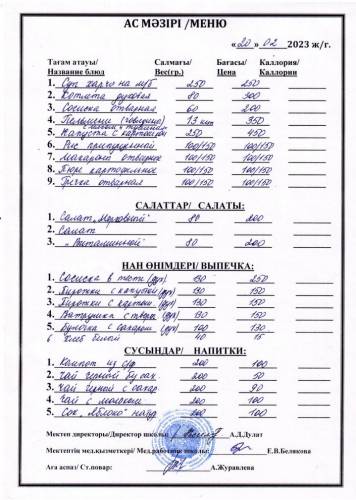 АС МӘЗІРІ /МЕНЮ
«20» 02 2023 ж/г.
Тағам атауы/ Салмағы/ Бағасы/ Каллория/
Название блюд Вес(гр.) Цена Каллории
1. Суп харчо на м/б 250 250
2. Котлета духовая 80 300
3. Сосиска отварная 60 200
4. Пельмени (говядина) 13 шт 350
5. Капуста с картофелем 250 450
6. Рис припущенный 100/150 100/150
7. Макароны отварные 100/150 100/150
8. Пюре картофельное 100/150 100/150
9. Гречка отварная 100/150 100/150
САЛАТТАР/ САЛАТЫ:
1. Салат „Морковный" 80 200
2. Салат
3. „Витаминный" 80 200
НАН ӨНІМДЕРІ/ ВЫПЕЧКА:
1. Сосиска в тесте (дух) 130 250
2. Пирожки с капустой (дух) 130 150
3. Пирожки с картош. (дух) 130 150
4. Ватрушка с творог. (дух) 130 150
5. Булочка с сахаром (дух) 100 130
6 Хлеб белый 40 15
СУСЫНДАР/ НАПИТКИ:
1. Компот из с/ф 200 100
2. Чай черный без сах. 200 50
3. Чай черный с сахар 200 90
4. Чай с молоком 200 100
5. Сок „Яблоко" натур 200 100
Мектеп директоры/Директор школы: А.Д.Дулат
Мектептің мед.қызметкері/ Мед.работница школы: Е.В.Белякова
Аға аспаз/ Ст.повар: А.Журавлева